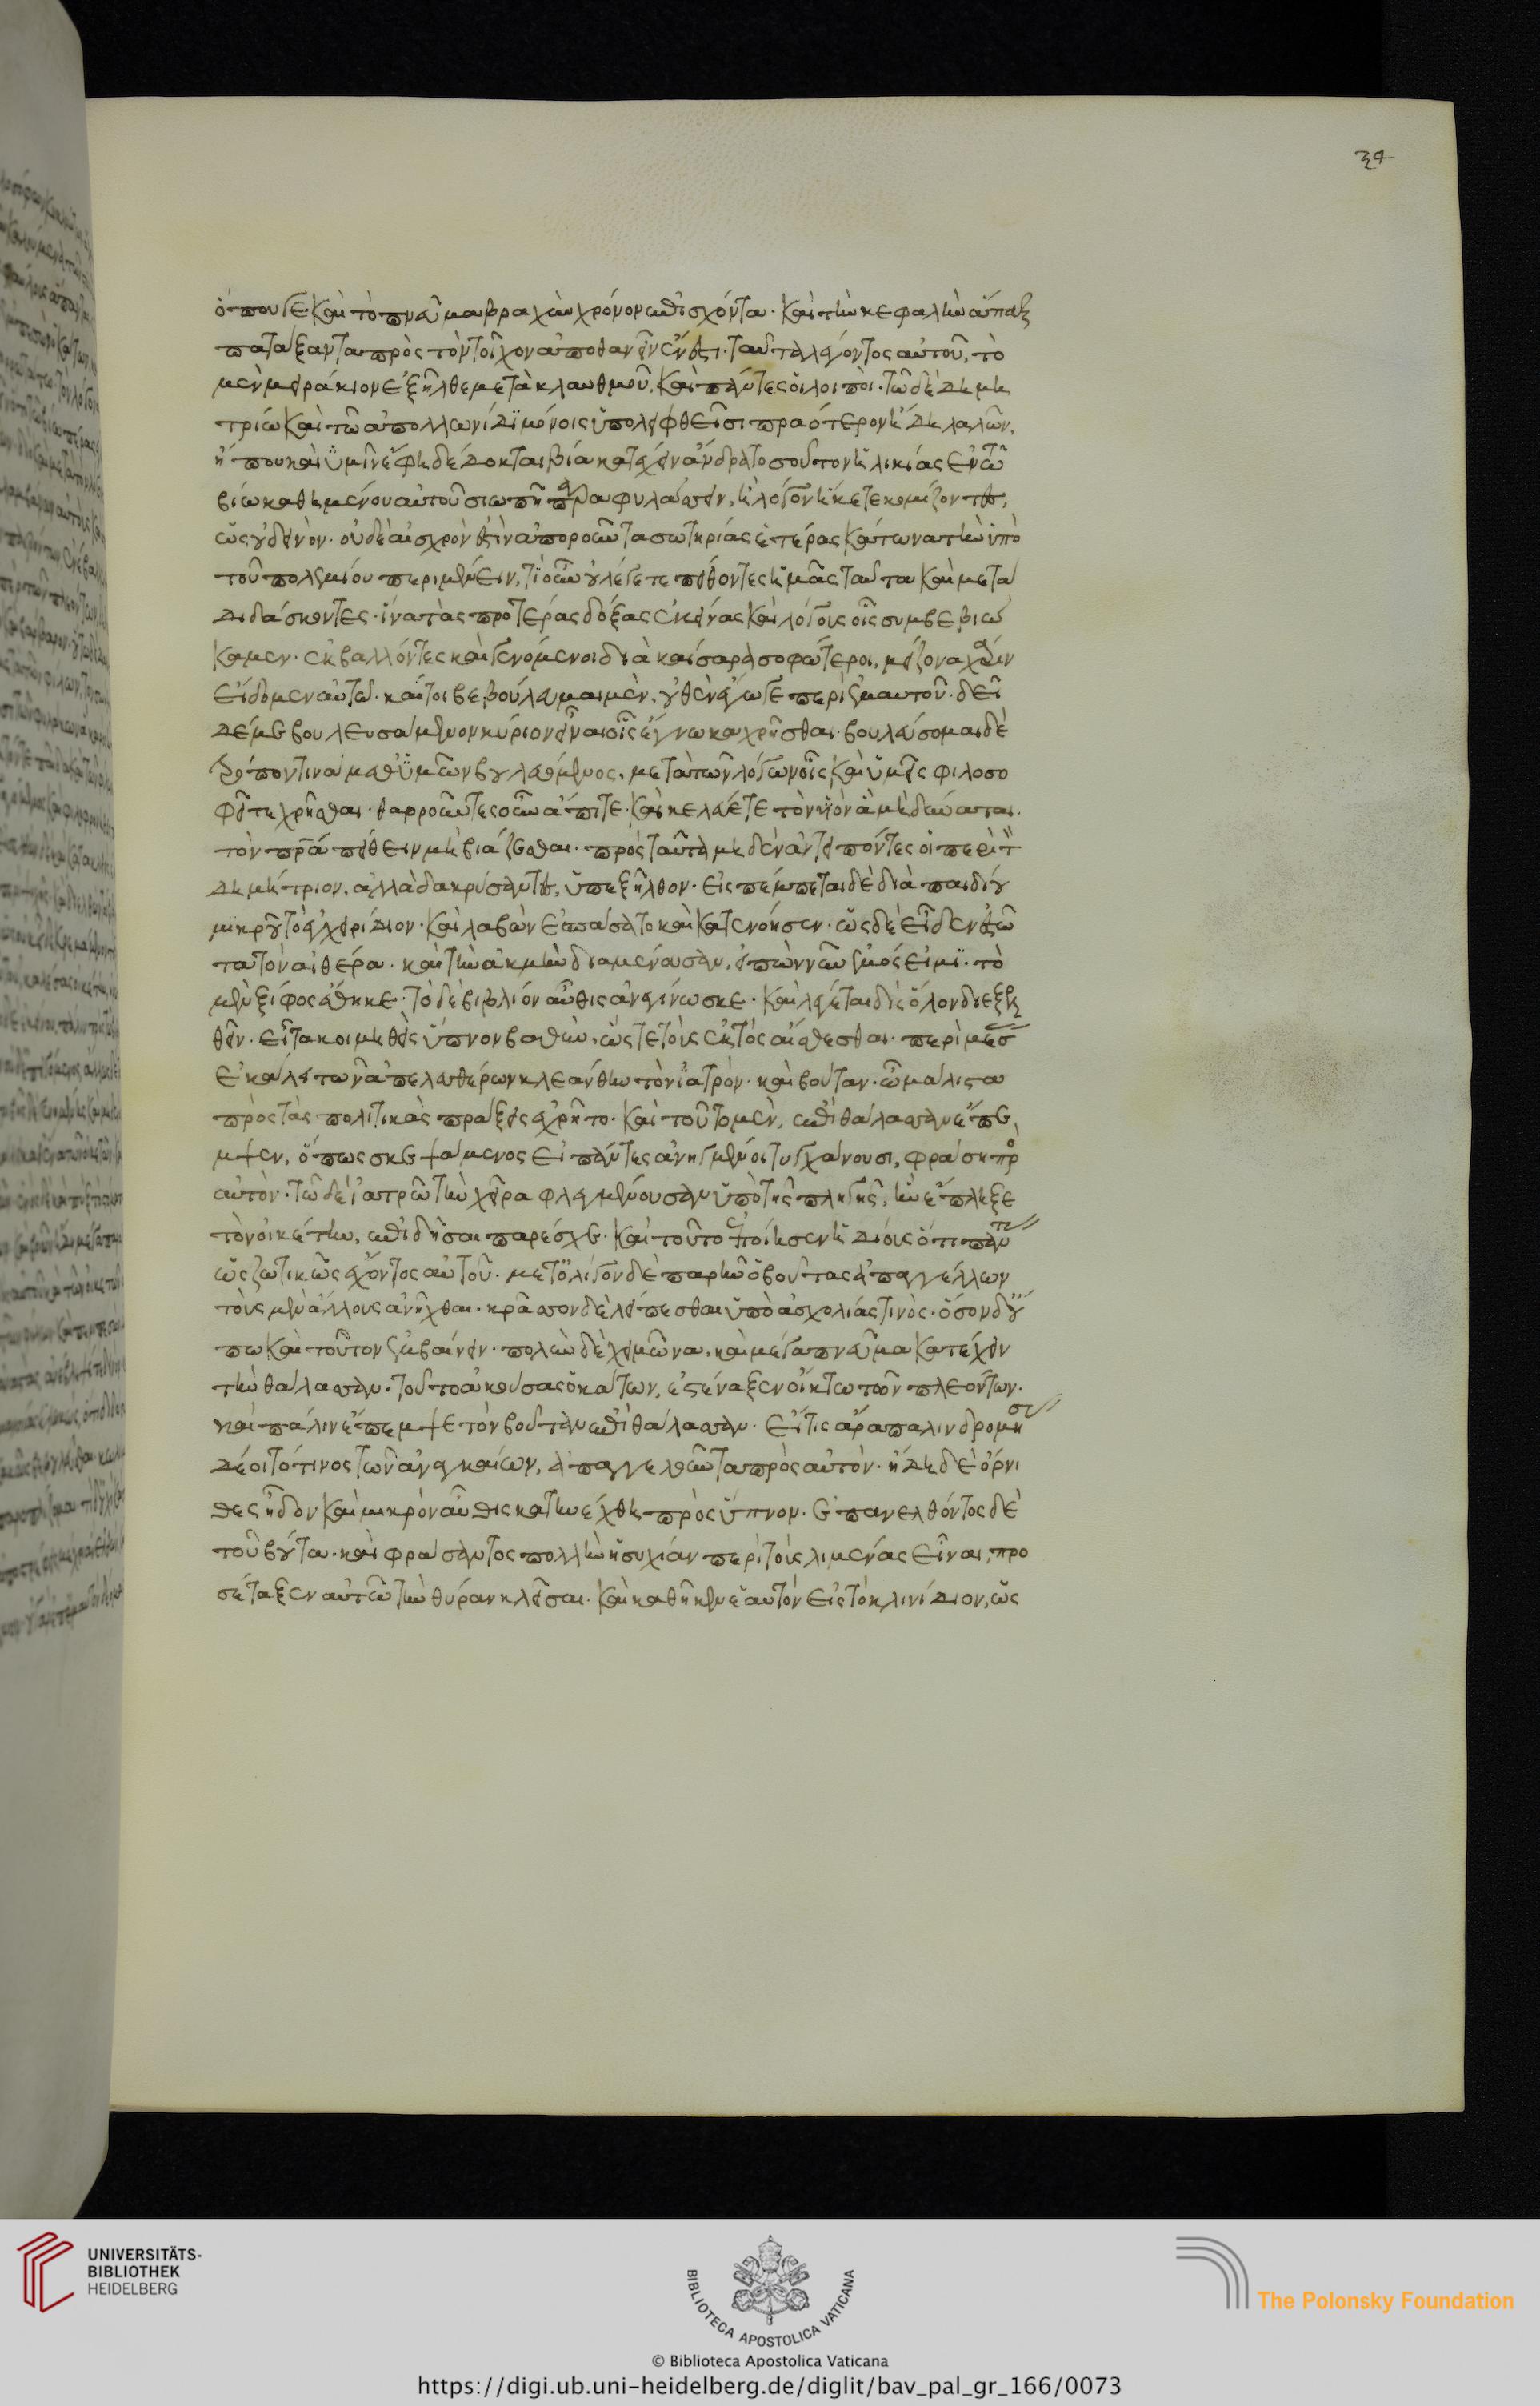 ὅπου γε καὶ τὸ πνεῦμα βραχὺν χρόνον ἐπισχόντα. καὶ τὴν κεφαλὴν ἅπαξ
πατάξαντα πρὸς τὸν τοῖχον ἀποθανεῖν ἔνεστι. ταῦτα λέγοντος αὐτοῦ, τὸ
μὲν μειράκιον ἐξῆλθε μετὰ κλαυθμοῦ, καὶ πάντες οἱ λοιποί. τῶ δὲ δημη
τρίω καὶ τῶ ἀπολλωνίδϊ μόνοις ὑπολειφθεῖσι πραότερον ἤδη λαλῶν,
ἤ που καὶ ὑμῖν ἔφη δέδοκται βία κατέχειν ἄνδρα τοσοῦτον ἡλικίας ἐν τῶ
βίω καθημένου αὐτοῦ σιωπῆ παραφυλάττειν, ἢ λόγον ἥκετε κομίζοντες,
ὡς οὐ δεινόν. οὐδὲ αἰσχρόν ἐστιν ἀποροῦντα σωτηρίας ἑτέρας κάτωνα τὴν ὑπὸ
τοῦ πολεμίου περιμένειν, τί οὖν οὐ λέγετε πείθοντες ἡμᾶς ταῦτα καὶ μετα
διδάσκοντες. ἵνα τὰς προτέρας δόξας ἐκείνας καὶ λόγους οἷς συμβεβιώ
καμεν. ἐκβαλλόντες καὶ γενόμενοι διὰ καίσαρα σοφώτεροι, μείζονα χάριν
εἴδομεν αὐτῶ. καίτοι βεβούλευμαι μὲν, οὐθὲν ἔγωγε περὶ ἐμαυτοῦ. δεῖ
δέ με βουλευσάμενον κύριον εἶναι οἷς ἔγνωκα χρῆσθαι. βουλεύσομαι δὲ
τρόπον τινὰ μεθ' ὑμῶν βουλευόμενος, μετὰ τῶν λόγων οἷς καὶ ὑμεῖς φιλοσο
φεῖτε χρῆσθαι. θαρροῦντες οὖν ἄπιτε. καὶ κελεύετε τὸν υἱὸν ἃ μὴ δύναται.
τὸν πρα πείθειν μὴ βιάζεσθαι. πρὸς ταῦτα μηδὲν ἀντειπόντες οἱ περὶ τ
δημήτριον, ἀλλὰ δακρύσαντες, ὑπεξῆλθον. εἰσπέμπεται δὲ διὰ παιδίου
μικροῦ τὸ ἐγχειρίδιον. καὶ λαβὼν ἐσπάσατο καὶ κατενόησεν. ὡς δὲ εἶδεν ἑστῶ
τα τὸν ἀθέρα. καὶ τὴν ἀκμὴν διαμένουσαν, εἰπὼν νῦν ἐμός εἰμϊ. τὸ
μὲν ξίφος ἔθηκε. τὸ δὲ βιβλίον αὖθις ἀνεγίνωσκε. καὶ λέγεται δὶς ὅλον διεξελ
θεῖν. εἶτα κοιμηθεὶς ὕπνον βαθὺν, ὥστε τοὺς ἐκτὸς αἴσθεσθαι. περὶ μέσ
ἐκάλει τῶν ἀπελευθέρων κλεάνθην τὸν ἰατρὸν. καὶ βούταν. ὧ μάλιστα
πρὸς τὰς πολιτικὰς πράξεις ἐχρῆτο. καὶ τοῦτο μὲν, ἐπὶ θάλασσαν ἔπε
μψεν, ὅπως σκεψάμενος εἰ πάντες ἀνηγμένοι τυγχάνουσι, φράση πρ
αὐτόν. τῶ δὲ ἰατρῶ τὴν χεῖρα φλεγμένουσαν ὑπὸ τῆς πληγῆς, ἣν ἔπληξε
τὸν οἰκέτην, ἐπιδῆσαι παρέσχε. καὶ τοῦτο ἐποίησεν ἡδίους ὅτι παντὶ
ὡς ζωτικῶς ἔχοντος αὐτοῦ. μετ' ὀλίγον δὲ παρῆν ὁ βούτας ἀπαγγέλλων
τοὺς μὲν ἄλλους ἀνῆχθαι. κράσσον δὲ λείπεσθαι ὑπὸ ἀσχολίας τινός. ὅσον δὲ οὔ
πω καὶ τοῦτον ἐμβαίνειν. πολὺν δὲ χειμῶνα, καὶ μέγα πνεῦμα κατέχειν
τὴν θάλασσαν. τοῦτο ἀκούσας ὁ κάτων, ἐστέναξεν οἴκτω τῶν πλεόντων.
καὶ πάλιν ἔπεμψε τὸν βούταν ἐπὶ θάλασσαν. εἴ τις ἄρα παλινδρομήσ
δέοιτό τινος τῶν ἀναγκαίων, ἀπαγγελοῦντα πρὸς αὐτόν. ἤδη δὲ ὄρνι
θες ᾖδον καὶ μικρὸν αὖθις κατηνέχθη πρὸς ὕπνον. ἐπανελθόντος δὲ
τοῦ βούτα. καὶ φράσαντος πολλὴν ἡσυχίαν περὶ τοὺς λιμένας εἶναι, προ
σέταξεν αὐτῶ τὴν θύραν κλεῖσαι. καὶ καθῆκεν ἑαυτὸν εἰς τὸ κλινίδιον, ὡς
UNIVERSITÄTS-
BIBLIOTHEK
HEIDELBERG
BIBLIOTECA APOSTOLICA VATICANA
The Polonsky Foundation
© Biblioteca Apostolica Vaticana
https://digi.ub.uni-heidelberg.de/diglit/bav_pal_gr_166/0073